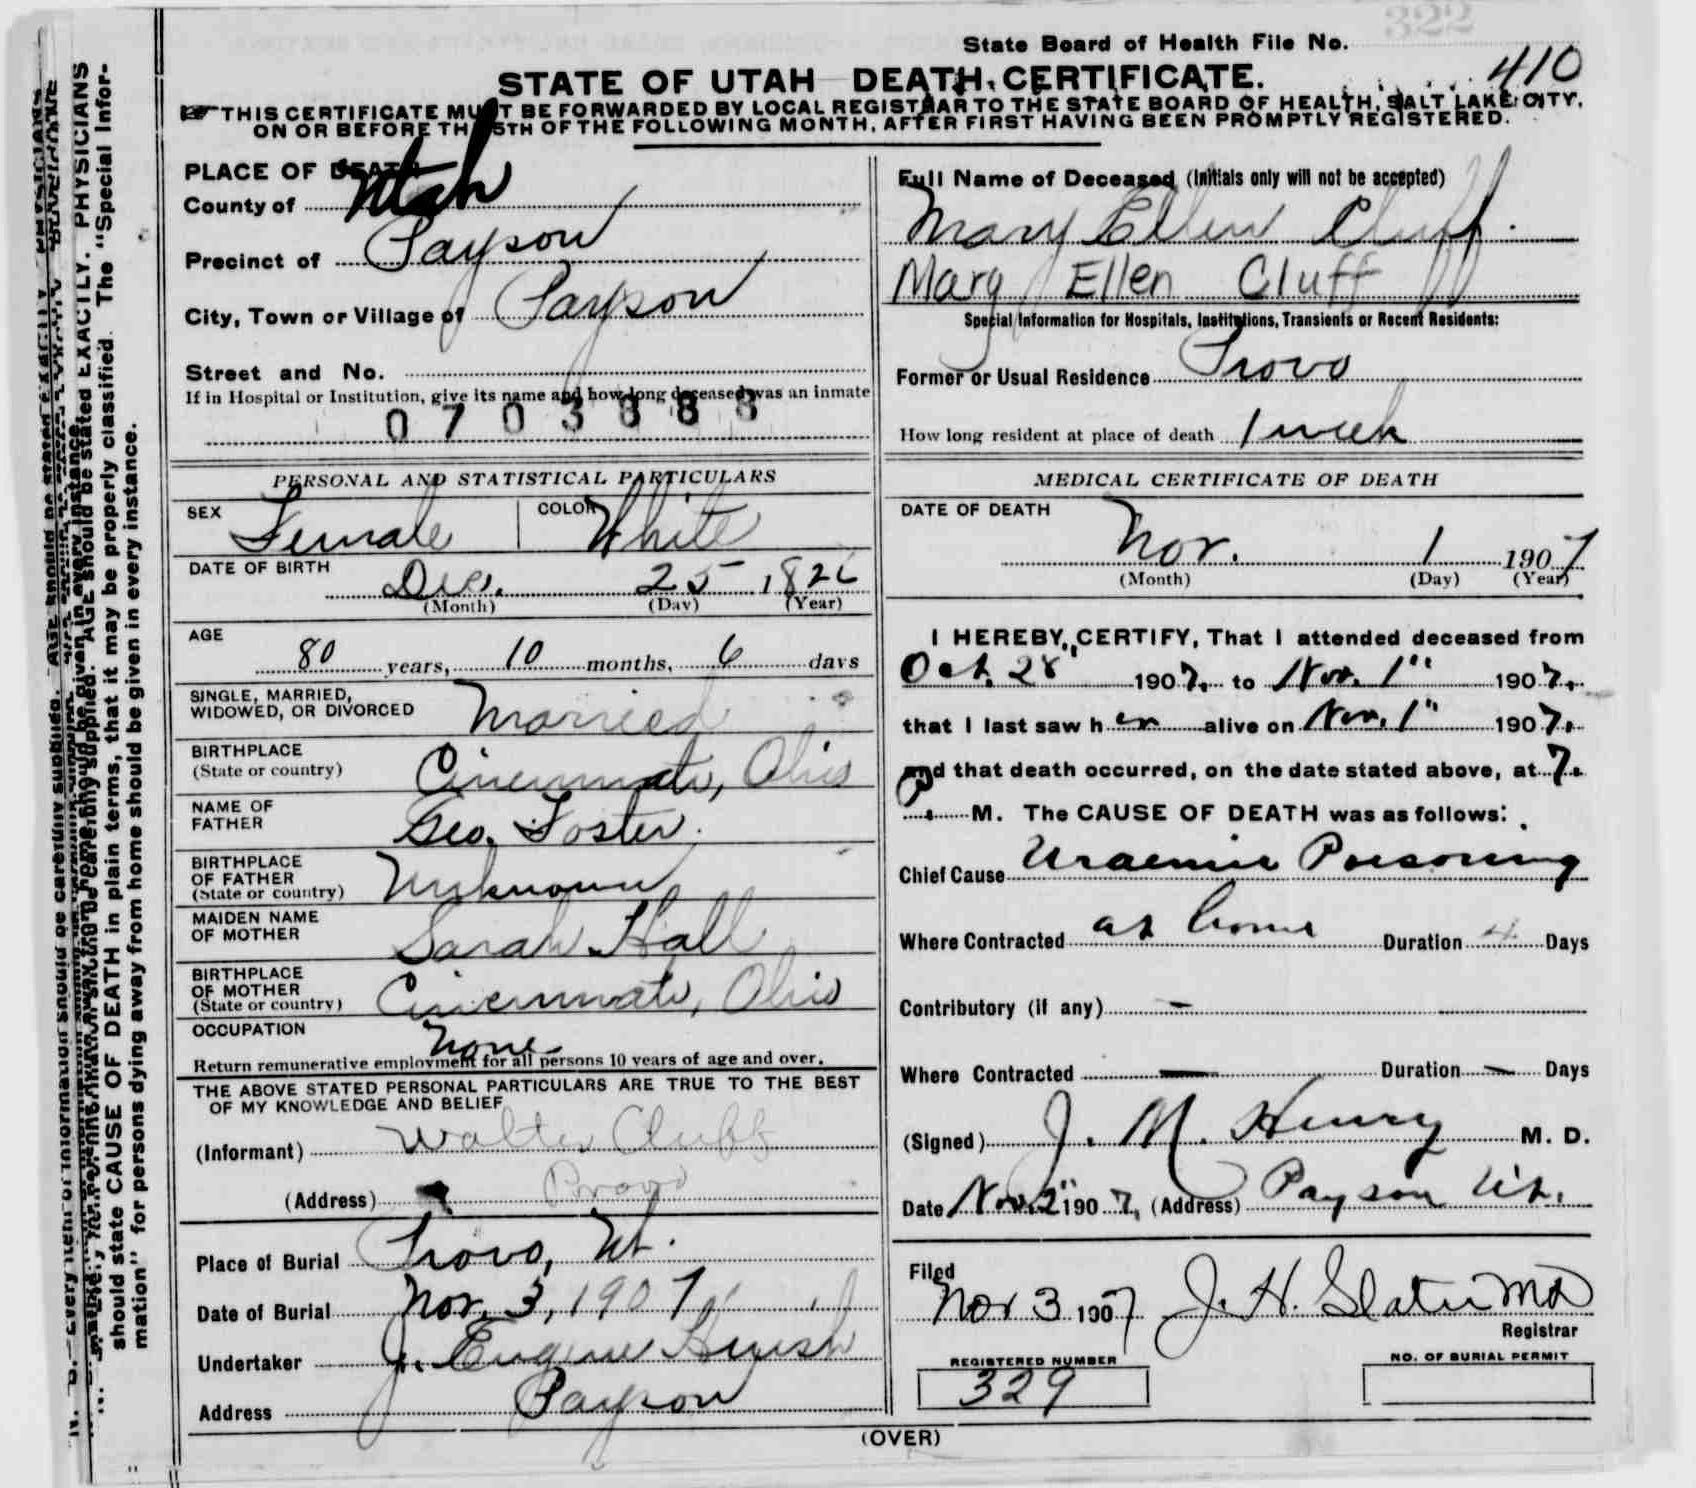 322
State Board of Health File No.
410
STATE OF UTAH DEATH CERTIFICATE.
THIS CERTIFICATE MUST BE FORWARDED BY LOCAL REGISTRAR TO THE STATE BOARD OF HEALTH, SALT LAKE CITY,
ON OR BEFORE THE 5TH OF THE FOLLOWING MONTH, AFTER FIRST HAVING BEEN PROMPTLY REGISTERED.
PLACE OF DEATH
County of Utah
Precinct of Payson
City, Town or Village of Payson
Street and No.
If in Hospital or Institution, give its name and how long deceased was an inmate
0703888
PERSONAL AND STATISTICAL PARTICULARS
SEX Female COLOR White
DATE OF BIRTH
Dec. 25 1826
(Month) (Day) (Year)
AGE
80 years, 10 months, 6 days
SINGLE, MARRIED,
WIDOWED, OR DIVORCED Married
BIRTHPLACE
(State or country) Cincinnati, Ohio
NAME OF
FATHER Geo. Foster.
BIRTHPLACE
OF FATHER
(State or country) Unknown
MAIDEN NAME
OF MOTHER Sarah Hall
BIRTHPLACE
OF MOTHER
(State or country) Cincinnati, Ohio
OCCUPATION None
Return remunerative employment for all persons 10 years of age and over.
THE ABOVE STATED PERSONAL PARTICULARS ARE TRUE TO THE BEST
OF MY KNOWLEDGE AND BELIEF
(Informant) Walter Cluff
(Address) Provo
Place of Burial Provo, Ut.
Date of Burial Nov. 3, 1907
Undertaker J. Eugene Huish
Address Payson
Full Name of Deceased (Initials only will not be accepted)
Mary Ellen Cluff.
Mary Ellen Cluff
Special Information for Hospitals, Institutions, Transients or Recent Residents:
Former or Usual Residence Provo
How long resident at place of death 1 week
MEDICAL CERTIFICATE OF DEATH
DATE OF DEATH
Nov. 1 1907
(Month) (Day) (Year)
I HEREBY CERTIFY, That I attended deceased from
Oct. 28" 1907, to Nov. 1" 1907,
that I last saw her alive on Nov. 1" 1907,
and that death occurred, on the date stated above, at 7.
P. M. The CAUSE OF DEATH was as follows:
Chief Cause Uraemic Poisoning
Where Contracted at home Duration 4 Days
Contributory (if any) -
Where Contracted - Duration - Days
(Signed) J. M. Henry M. D.
Date Nov. 2" 1907, (Address) Payson Ut.
Filed
Nov 3 1907 J. H. Slater MD
Registrar
REGISTERED NUMBER
329
NO. OF BURIAL PERMIT
(OVER)
AGE should be stated EXACTLY. PHYSICIANS
should state CAUSE OF DEATH in plain terms, that it may be properly classified. The "Special Infor-
mation" for persons dying away from home should be given in every instance.